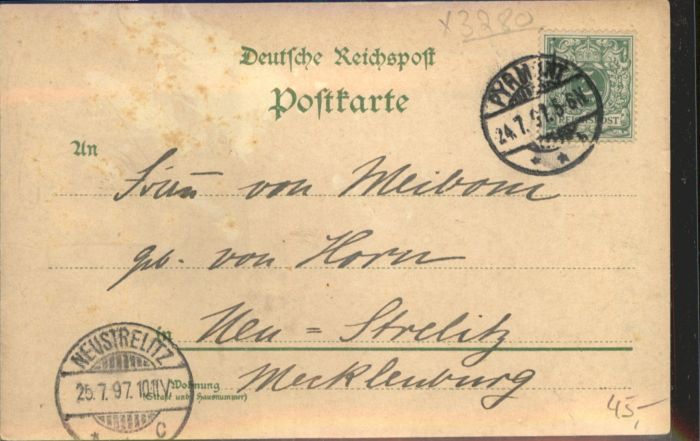 x 3280
Deutsche Reichspost
Postkarte
PYRMONT
24.7.97. 5-6N.
REICHSPOST
An
Frau von Meibom
geb. von Horn
in Neu=Strelitz
Mecklenburg
Wohnung
(Straße und Hausnummer)
NEUSTRELITZ
25.7.97.10-11V
* c
45,-